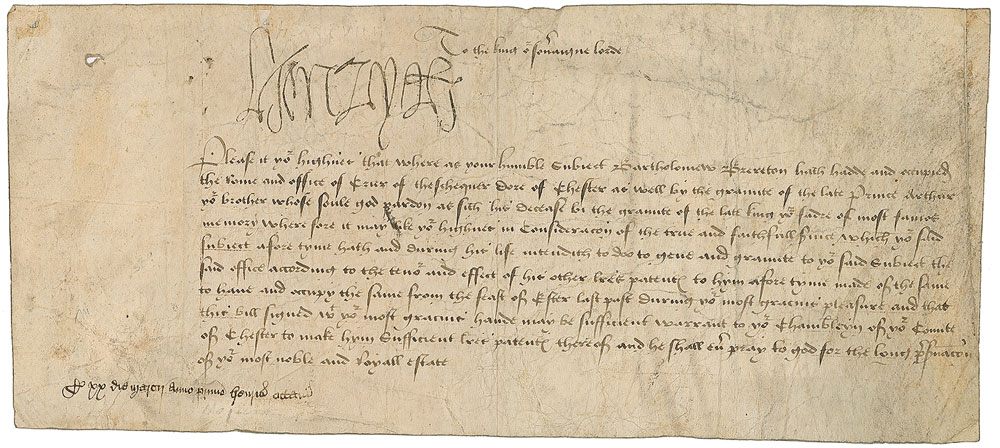 To the king oʳ soūaigne lorde
Henry R
Please it yoʳ highnes that where as your humble Subiect Bartholomew Brereton hath hadde and occupied
the Rome and office of Crier of theschequer dore of Chester as well by the graunte of the late Prince Arthur
yoʳ brother whose soule god pardon as sith his decease bi the graunte of the late king yoʳ fadre of most famos
memory Where fore it may like yoʳ highnes in Consideracōn of the true and faithfull ſuice which yoʳ said
subiect afore tyme hath and during his life intendith to doo to geue and graunte to yoʳ said Subiect the
said office according to the tenoʳ and effect of his other lrēs patentꝭ to hym afore tyme made of the same
to haue and occupy the same from the feast of Ester last past During yoʳ most gracius pleasure and that
this bill signed wᵗ yoʳ most gracius hande may be sufficient warrant to yoʳ Chambleyn of yoʳ Counte
of Chester to make hym Sufficient lrēs patentꝭ thereof and he shall eū pray to god for the long pꝭuacōn
of yoʳ most noble and Royall estate
xx die marcii Anno primo henrici octavi